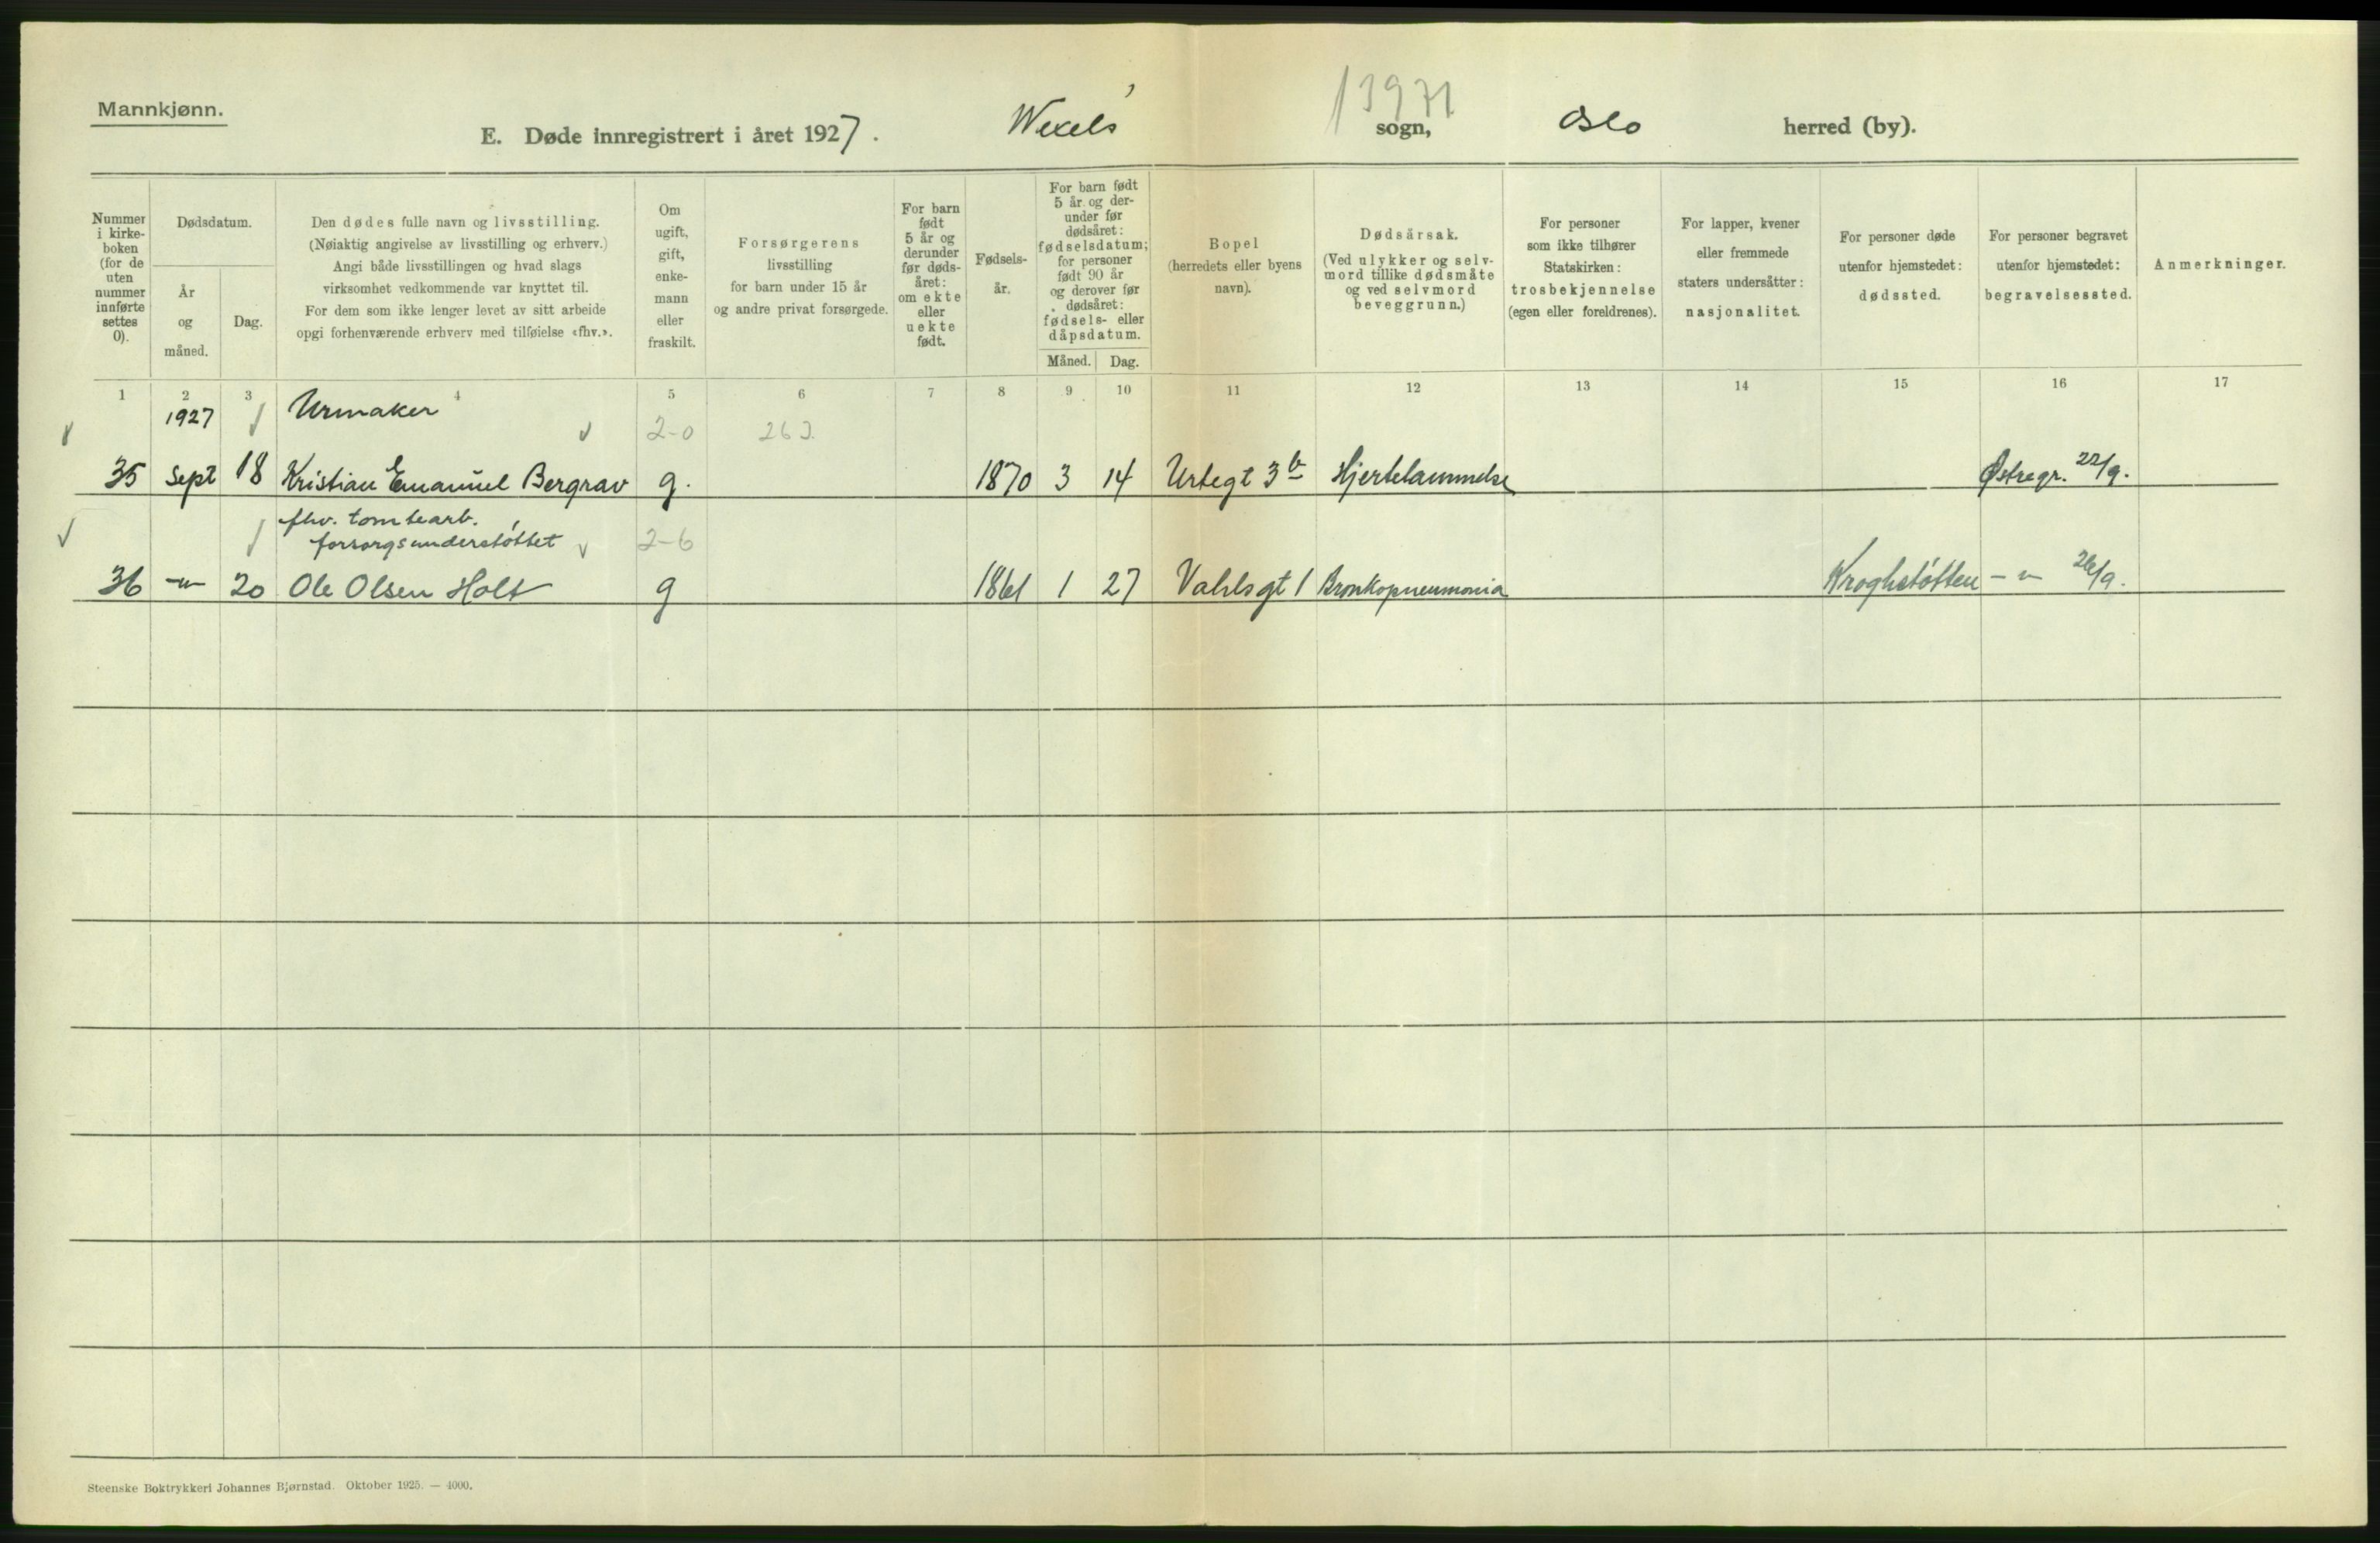 Mannkjønn.
E. Døde innregistrert i året 1927. Wexels sogn, Oslo herred (by).
13971
Nummer i kirke-boken (for de uten nummer innførte settes 0).
Dødsdatum.
År og måned.
Dag.
Den dødes fulle navn og livsstilling.
(Nøiaktig angivelse av livsstilling og erhverv.)
Angi både livsstillingen og hvad slags
virksomhet vedkommende var knyttet til.
For dem som ikke lenger levet av sitt arbeide
opgi forhenværende erhverv med tilføielse «fhv.».
Om ugift, gift, enke-mann eller fraskilt.
Forsørgerens
livsstilling
for barn under 15 år
og andre privat forsørgede.
For barn født 5 år og derunder før døds-året: om ekte eller uekte født.
Fødsels-år.
For barn født 5 år og der-under før dødsåret: fødselsdatum; for personer født 90 år og derover før dødsåret: fødsels- eller dåpsdatum.
Måned. Dag.
Bopel
(herredets eller byens
navn).
Dødsårsak.
(Ved ulykker og selv-
mord tillike dødsmåte
og ved selvmord
beveggrunn.)
For personer
som ikke tilhører
Statskirken:
trosbekjennelse
(egen eller foreldrenes).
For lapper, kvener
eller fremmede
staters undersåtter:
nasjonalitet.
For personer døde
utenfor hjemstedet:
dødssted.
For personer begravet
utenfor hjemstedet:
begravelsessted.
Anmerkninger.
1 2 3 4 5 6 7 8 9 10 11 12 13 14 15 16 17
1927 Urmaker 2-0 263.
35 Sept 18 Kristian Emanuel Bergrav g. 1870 3 14 Urtegt 3b Hjertelammelse Østregr. 22/9.
fhv. tomtearb.
forsorgsunderstøttet 2-6
36 -"- 20 Ole Olsen Holt g 1861 1 27 Vahlsgt 1 Bronkopneumonia Kroghstøtten -"- 26/9.
Steenske Boktrykkeri Johannes Bjørnstad. Oktober 1925. — 4000.